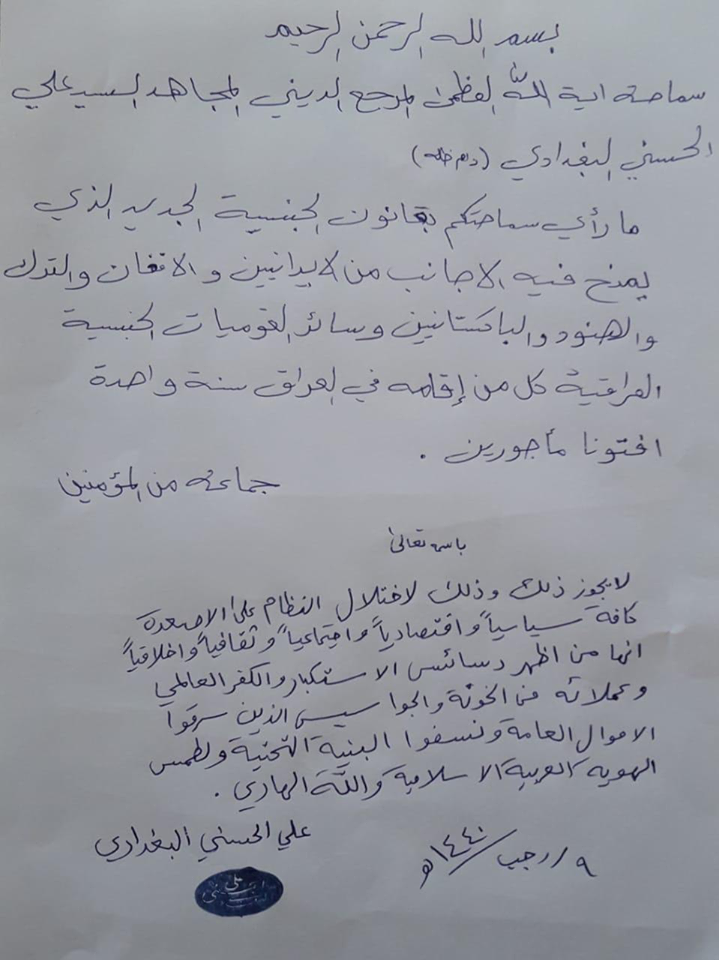 بسم الله الرحمن الرحيم
سماحة اية الله العظمى المرجع الديني المجاهد السيد علي
الحسني البغدادي (دام ظله)
ما رأي سماحتكم بقانون الجنسية الجديد الذي
يمنح فيه الاجانب من الايرانيين و الافغان والترك
والهنود والباكستانين وسائر القوميات الجنسية
العراقية كل من إقامه في العراق سنة واحدة
افتونا مأجورين .
جماعه من المؤمنين
باسمه تعالى
لايجوز ذلك وذلك لاختلال النظام على الاصعدة
كافة سياسياً واقتصادياً واجتماعياً وثقافياً واخلاقياً
انها من اظهر دسائس الاستكبار والكفر العالمي
وعملائه من الخونة والجواسيس الذين سرقوا
الاموال العامة ونسفوا البنية التحتية ولطمس
الهويه العربية الاسلامية والله الهادي .
علي الحسني البغدادي
٩/رجب/١٤٤٠هـ